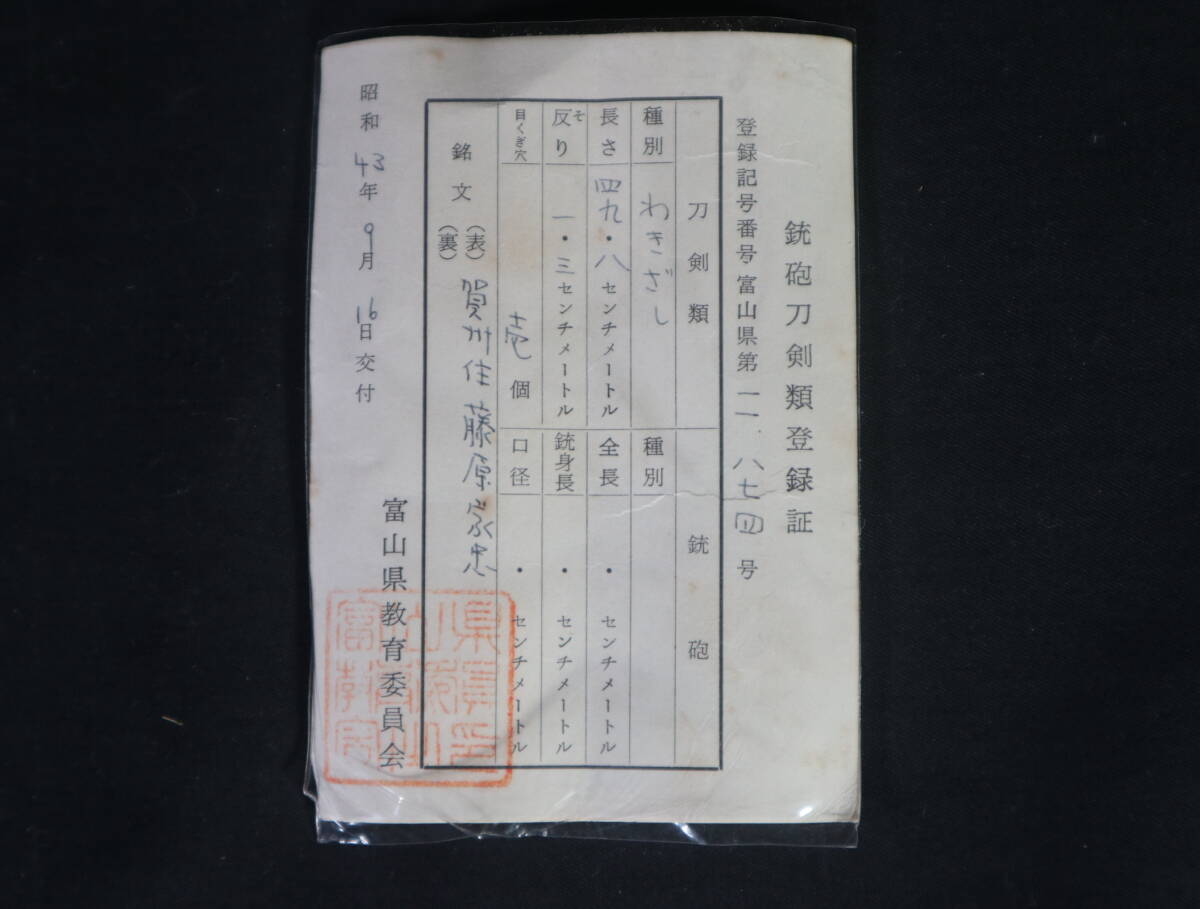 銃砲刀剣類登録証
登録記号番号富山県第一一八七四号
刀剣類
銃砲
種別 わきざし
種別
長さ 四九・八センチメートル
全長 ・ センチメートル
反り 一・三センチメートル
そ
銃身長 ・ センチメートル
目くぎ穴 壱個
口径 ・ センチメートル
銘文 (表) 賀州住藤原家忠
(裏)
昭和43年9月16日交付
富山県教育委員会